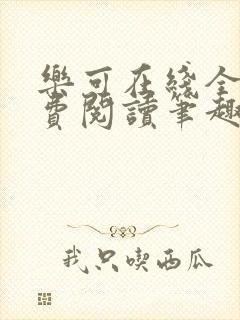 樂可在綫全
費閱讀筆趣
我只喫西瓜